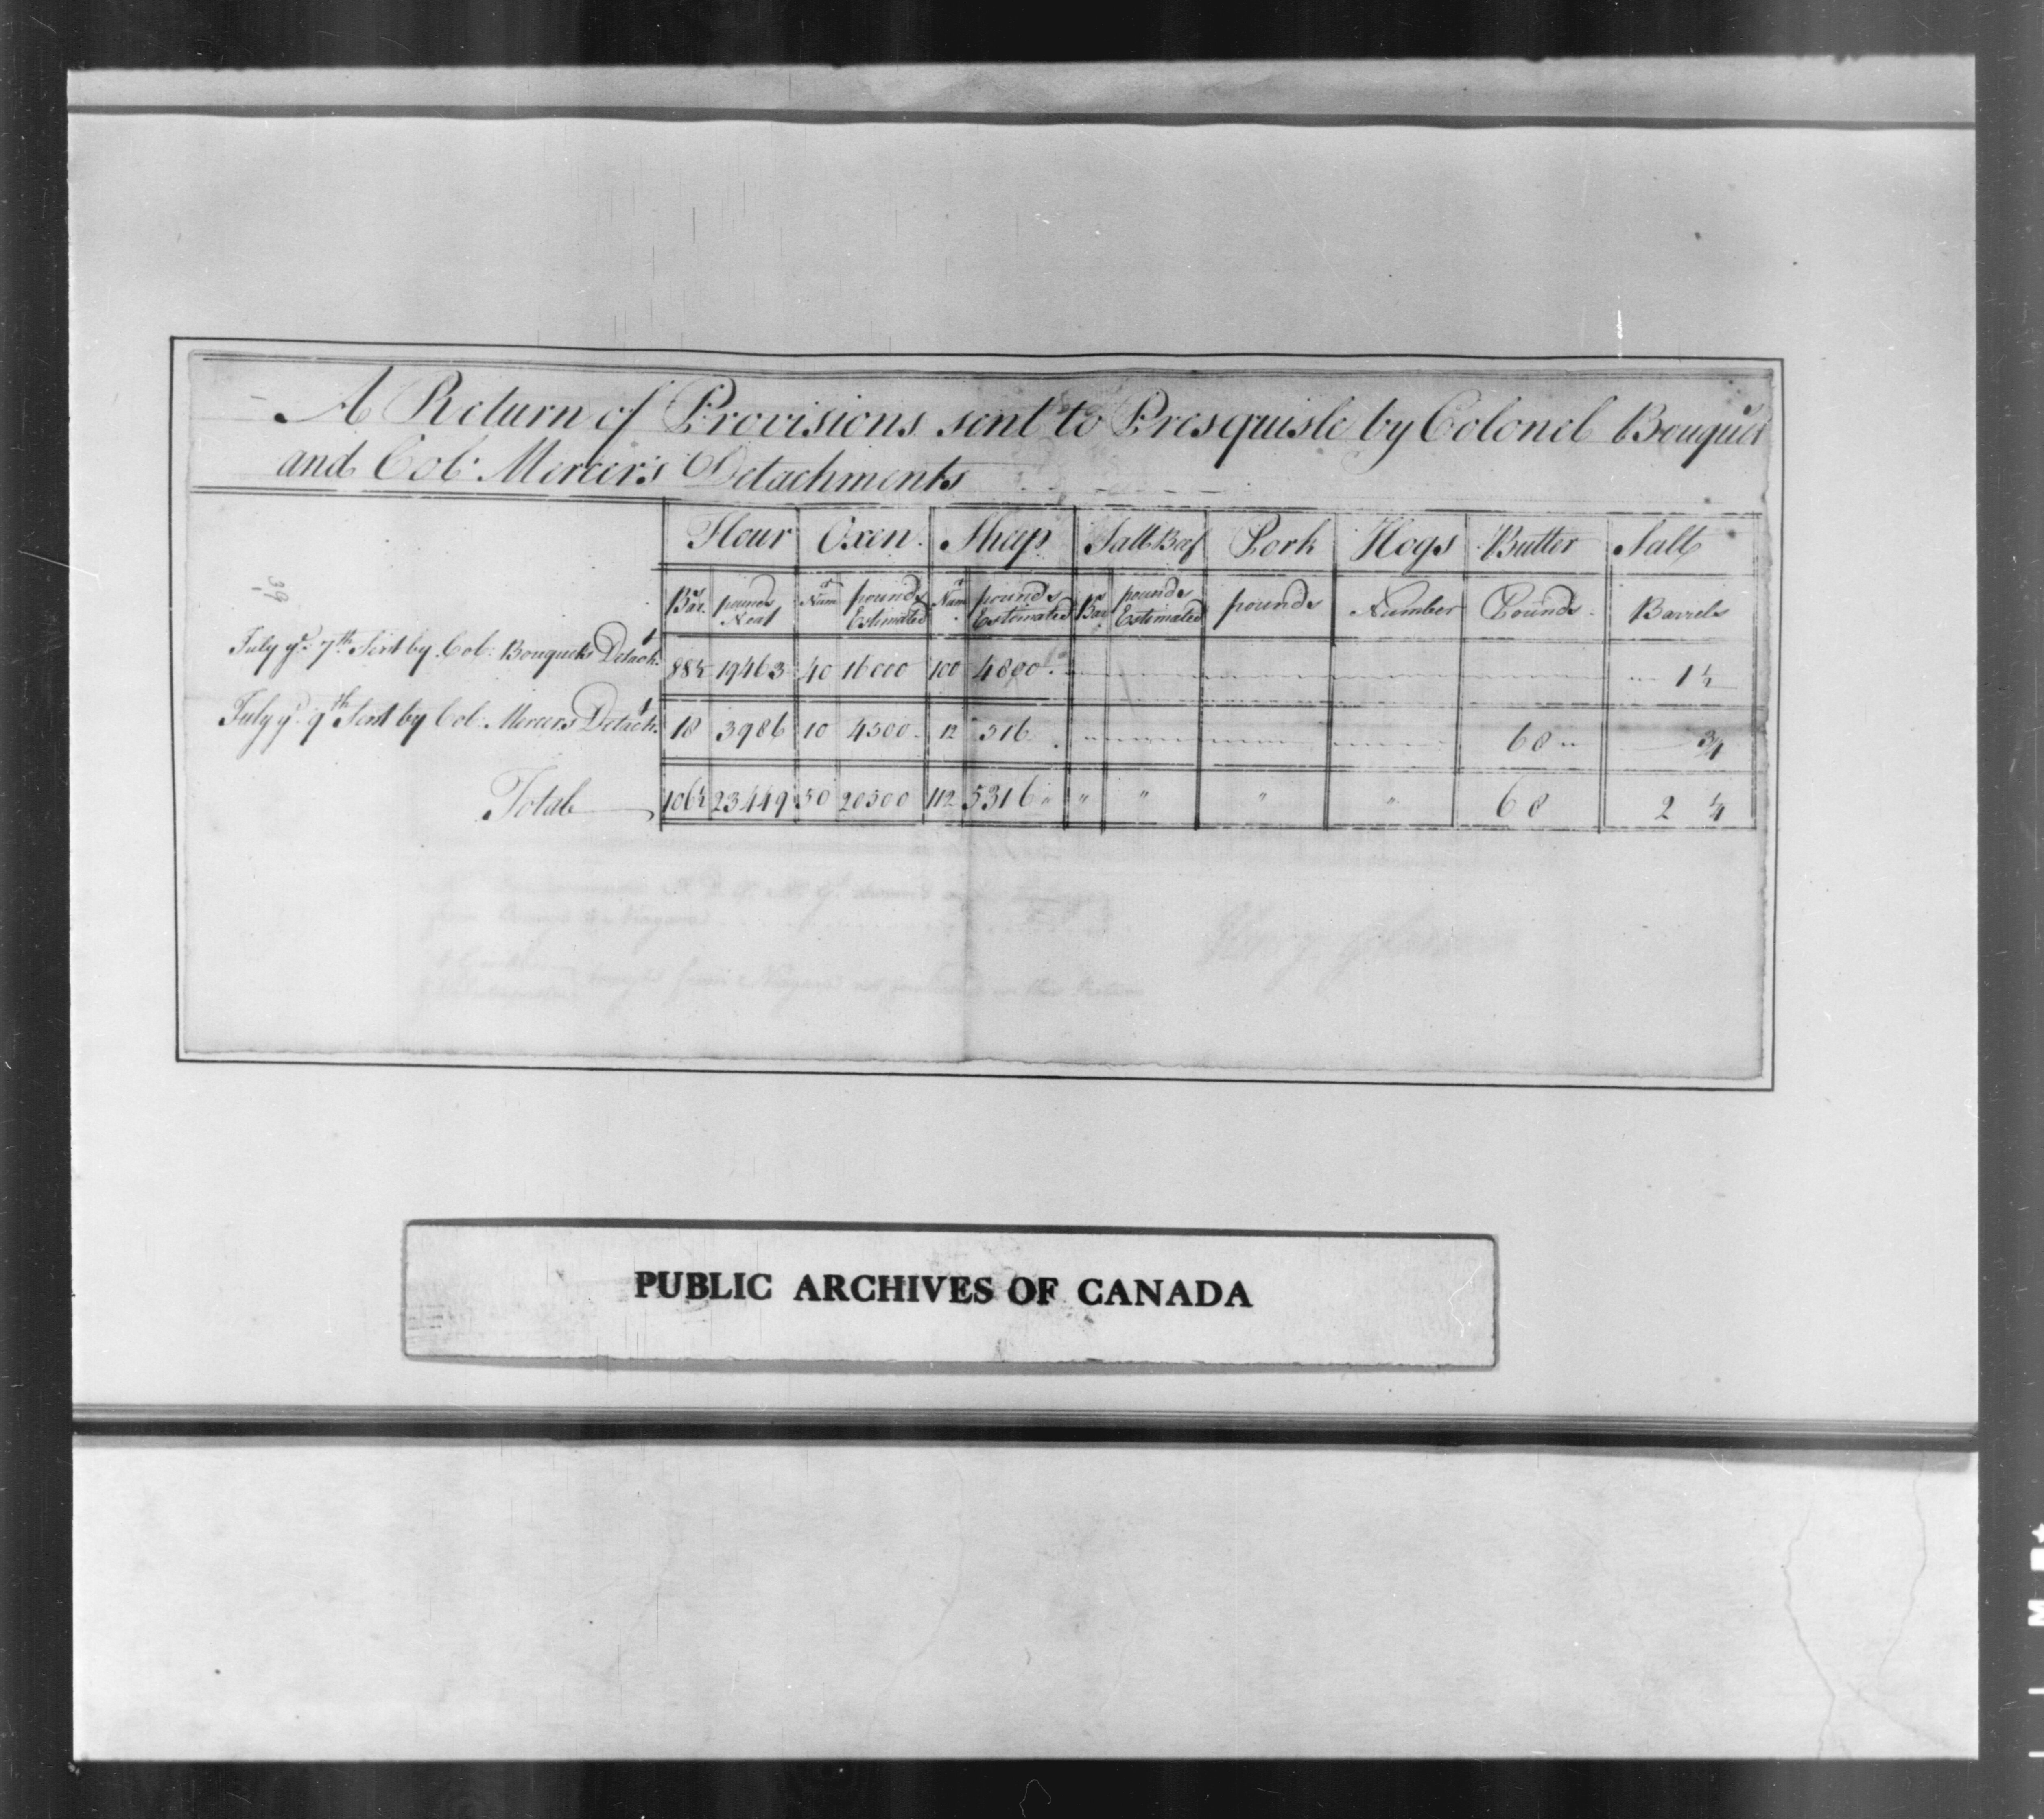 A Return of Provisions sent to Presquisle by Colonel Bouquet's
and Col: Mercer's Detachments
Flour Oxen Sheep Salt Beef Pork Hogs Butter Salt
Barˢ pounds Neat Numʳ pounds Estimated Numʳ pounds Estimated Barˢ pounds Estimated pounds Number Pounds Barrels
39
July yᵉ 7ᵗʰ Sent by Col: Bouquets Detachᵗ 88½ 19463 40 16000 100 4800 1½
July yᵉ 9ᵗʰ Sent by Col: Mercers Detachᵗ 18 3986 10 4500 12 516 68 ¾
Total 106½ 23449 50 20500 112 5316 " " " " " 68 2 ¼
PUBLIC ARCHIVES OF CANADA